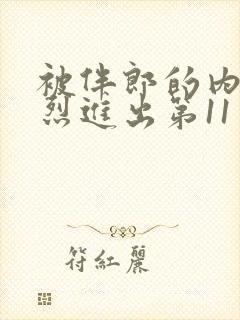 被伴郎的内
烈進出第11
符紅麗